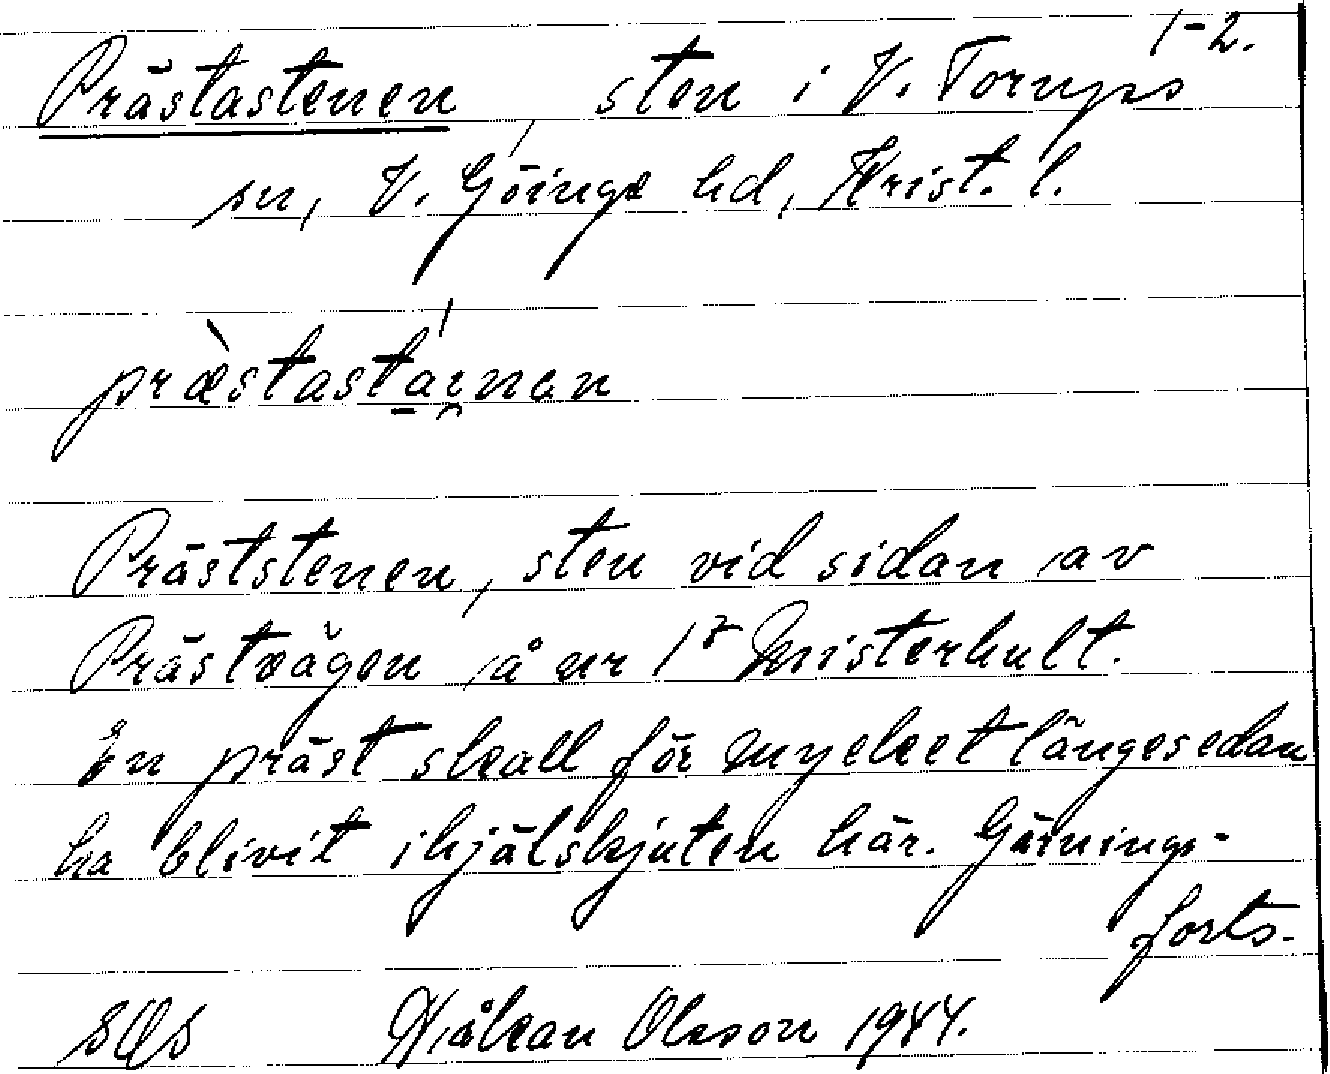 1-2.
Prästastenen, sten i V. Torups
sn, V. Göinge hd, Krist. l.
præ̀stastái̯nan
Präststenen, sten vid sidan av
Prästvägen å nr 1 Misterhult.
En präst skall för mycket längesedan
ha blivit ihjälskjuten här. Gärnings-
forts.
SOS Håkan Olsson 1944.